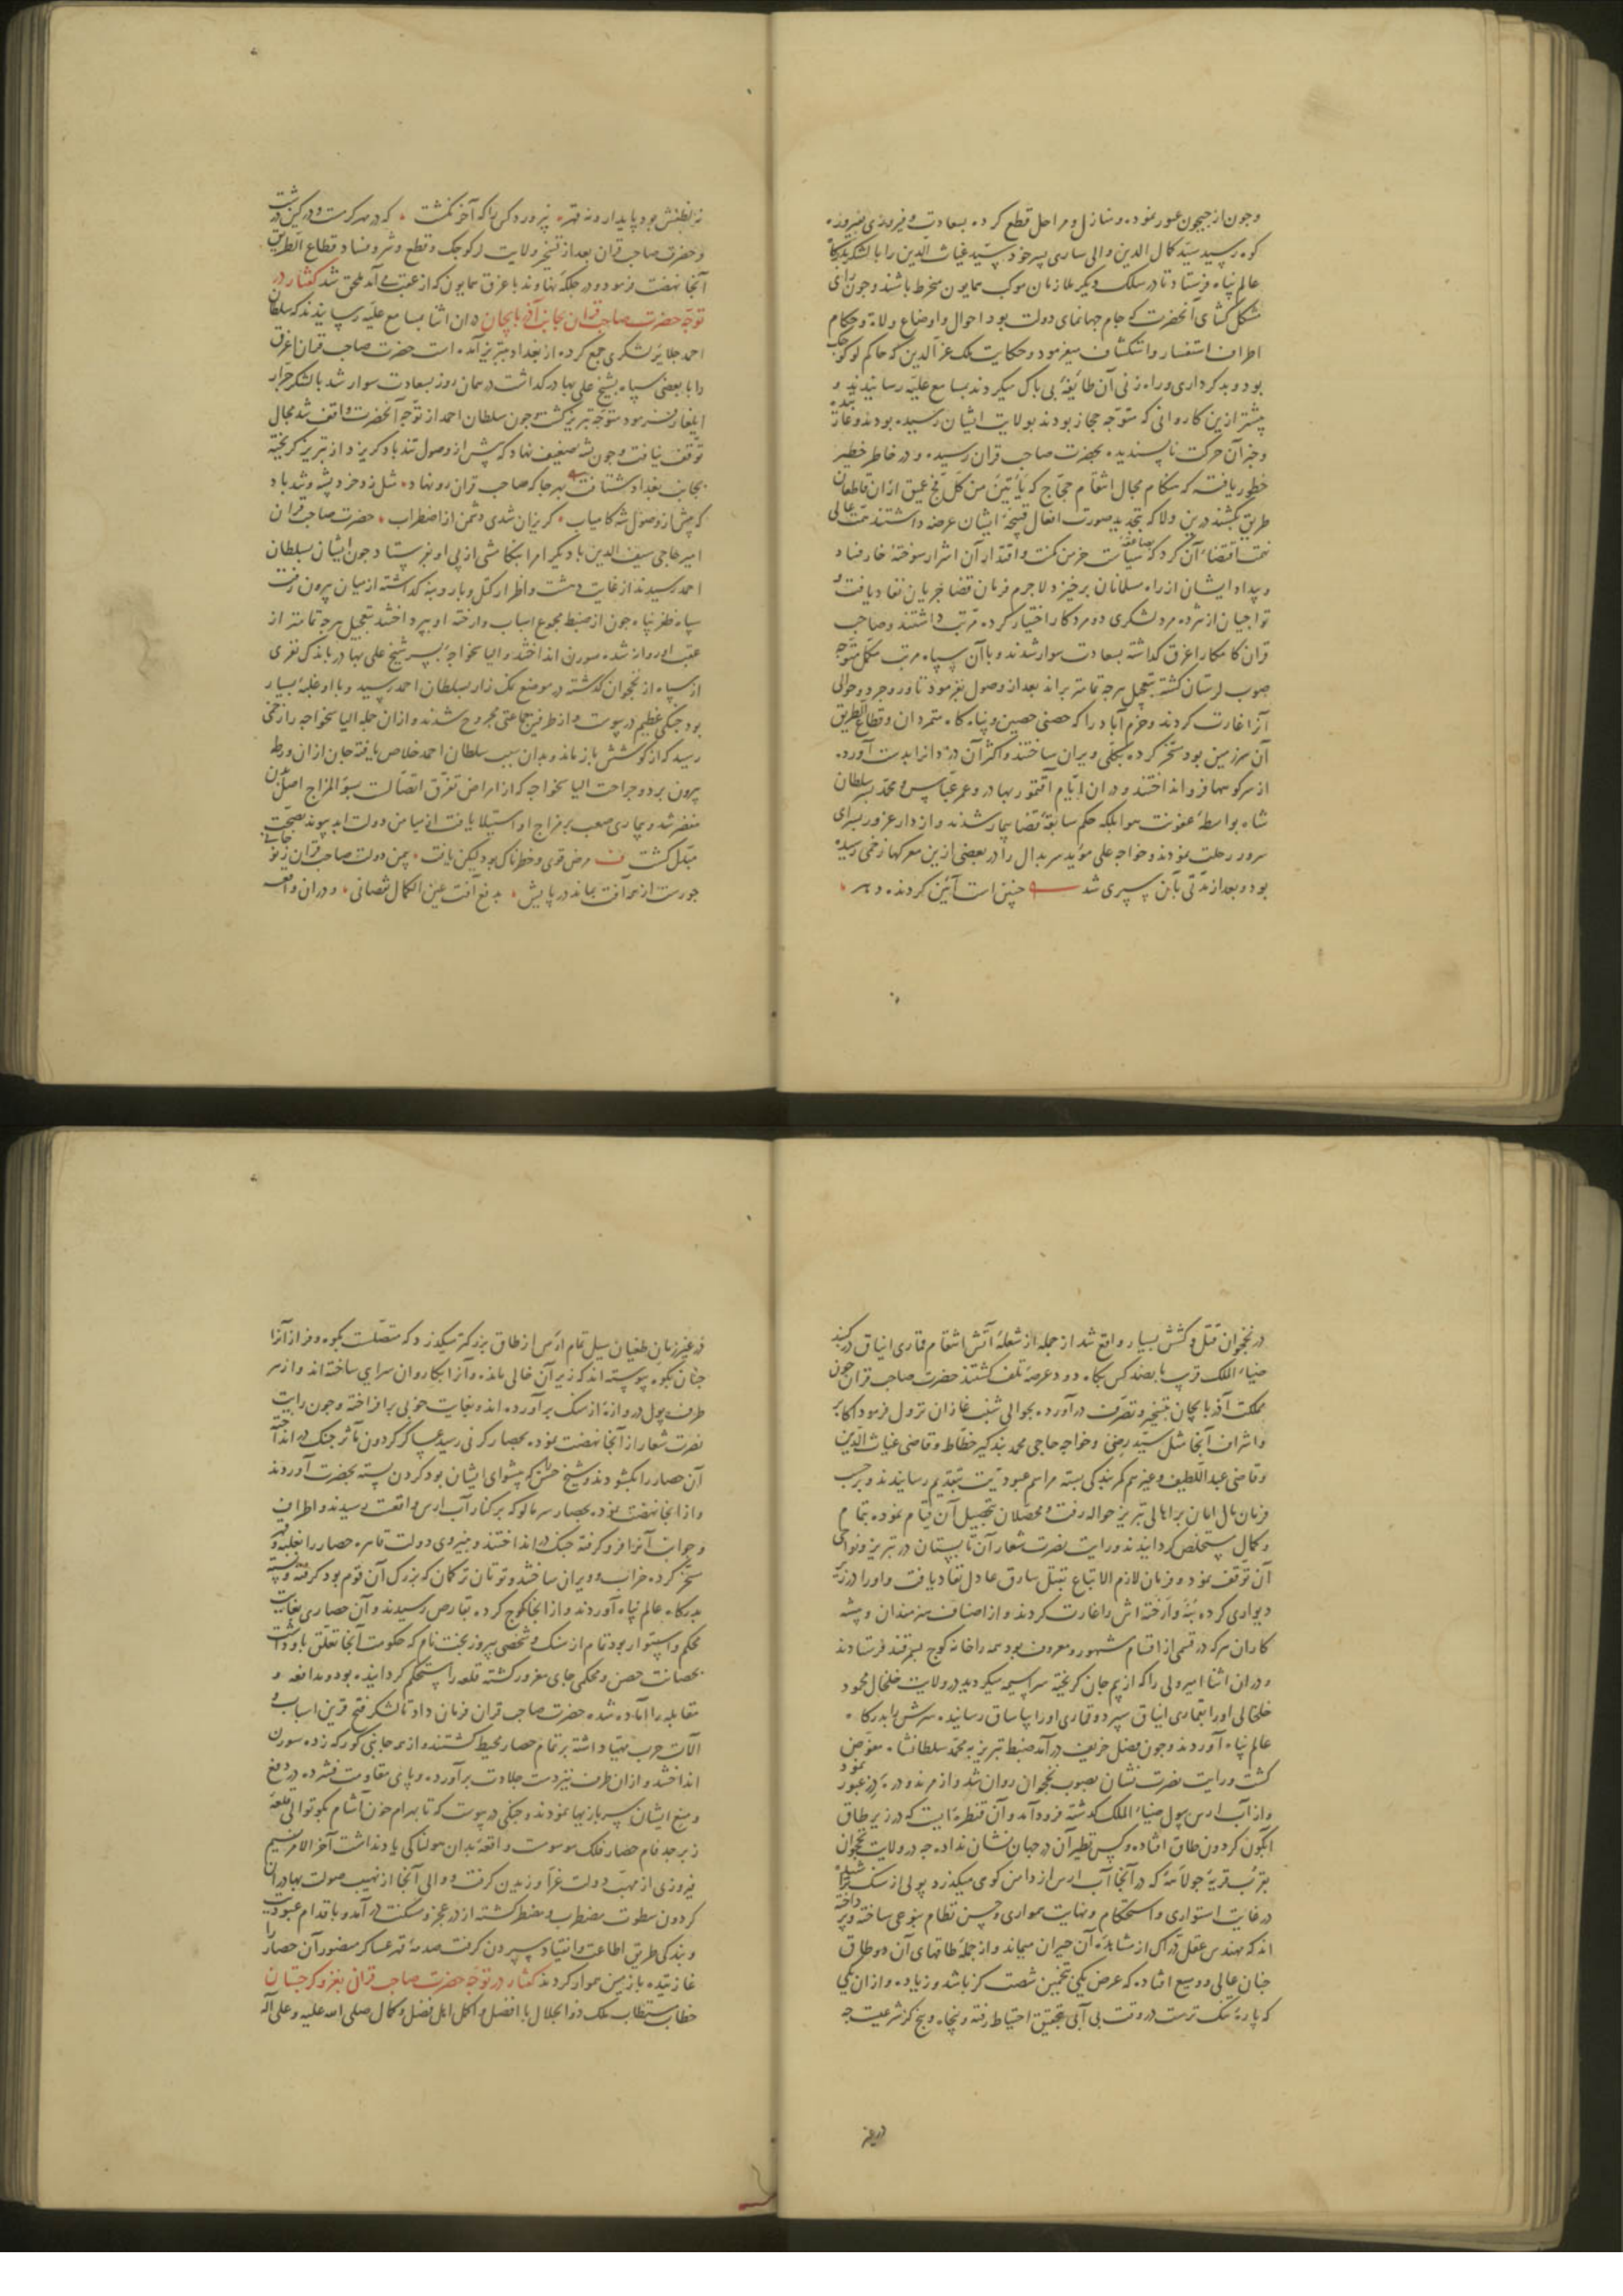 وچون از جیحون عبور نموده و منازل و مراحل قطع کرده بسعادت و فیروزی بفیروزه
کوه رسید سید کمال الدین والی ساری پسر خود سید غیاث الدین را با لشکر بدرگاه
عالم پناه فرستاد تا در سلک دیگر ملازمان موکب همایون منخرط باشند و چون رای
مشکل کشای آنحضرت که جام جهانمای دولت بود احوال و اوضاع ولاة و حکام
اطراف استفسار و استکشاف میفرمود و حکایت ملک عزالدین که حاکم لر کوچک
بود و بدکرداری و راه زنی آن طائفهٔ بی باک میکردند بمسامع علیه رسانیدند و
پیشتر ازین کاروانی که متوجه حجاز بودند بولایت ایشان رسیده بودند و غارت
و خبر آن حرکت ناپسندیده بحضرت صاحب قران رسیده و در خاطر خطیر
خطور یافته که هنکام مجال انتقام حجاج که یأتین من کل فج عمیق ازان قاطعان
طریق بکشند درین ولا که بتجدید صورت افعال قبیحهٔ ایشان عرضه داشتند همت عالی
نهمت اقتضاء آن کرد که خرمن مکنت و اقتدار آن اشرار سوخته خار فساد
و بیداد ایشان از راه مسلمانان برخیزد لاجرم فرمان قضا جریان نفاد یافت و
تواجیان از هر ده مرد لشکری دو مرد کار اختیار کرده مرتب داشتند و صاحب
قران کامکار اغرق کذاشته بسعادت سوار شدند و با آن سپاه مرتب مکمل متوجه
صوب لرستان کشته بتعجیل هرچه تمامتر براند بعد از وصول بفرمود تا وروجرد و حوالی
آنرا غارت کردند و خرم آباد را که حصنی حصین و پناه کاه متمردان و قطاع الطریق
آن سرزمین بود مسخر کرده بکلی ویران ساختند و اکثر آن دزدانرا بدست آورده
از سر کوهها فرو انداختند و دران ایام آقتمور بهادر و عمر عباس و محمد پسر سلطان
شاه بواسطهٔ عفونت هوا بلکه حکم سابقهٔ قضا بیمار شدند و از دار غرور بسرای
سرور رحلت نمودند و خواجه علی موید سربدال را در بعضی ازین معرکها زخمی رسیده
بود و بعد از مدتی بآن سپری شد چنین است آئین کردنده دهر
نه لطفش بود پایدار و نه قهر نپرورد کس را که آخر نکشت که در مهر کرمست و در کین درشت
و حضرت صاحب قران بعد از تسخیر ولایت لر کوچک و قطع و شر و فساد قطاع الطریق
آنجا نهضت فرمود و در جلکهٔ نهاوند با اغرق همایون که از عقب می آمد ملحق شد کفتار در
توجه حضرت صاحب قران بجانب آذربایجان دران اثنا بمسامع علیه رسانیدند که سلطان
احمد جلایر لشکری جمع کرده از بغداد بتبریز آمده است حضرت صاحب قران اغرق
را با بعضی سپاه بشیخ علی بهادر کذاشت در همان روز بسعادت سوار شد با لشکر جرار
ایلغار فرمود متوجه تبریز کشت چون سلطان احمد از توجه آنحضرت واقف شد مجال
توقف نیافت و چون پشه ضعیف نهاد که پیش از وصول تند باد کریزد از تبریز کریخته
بجانب بغداد شتافت بهر جا که صاحب قران رو نهاد مثل زد خرد پشه و تند باد
که پیش از وصول شه کامیاب کریزان شدی دشمن از اضطراب حضرت صاحب قران
امیر حاجی سیف الدین با دیکر امرا بتکامشی از پی او بفرستاد چون ایشان بسلطان
احمد رسیدند از غایت دهشت و اضطرار کتل و بار و بنه کذاشته از میان بیرون رفت
سپاه ظفر پناه چون از ضبط مجموع اسباب و ارخته او بپرداختند بتعجیل هرچه تمامتر از
عقب او روان شده سورن انداختند و الیاسخواجه پسر شیخ علی بهادر با اندک نفری
از سپاه از نخجوان کذشته در موضع نمک زار بسلطان احمد رسید و با او غلبهٔ بسیار
بود جنکی عظیم در پیوست و از طرفین جماعتی مجروح شدند و ازان جمله الیاسخواجه را زخمی
رسید که از کوشش باز ماند و بدان سبب سلطان احمد خلاص یافته جان ازان ورطه
بیرون برد و جراحت الیاسخواجه که از امراض تفرق اتصالست بسوء المزاج اصل بدن
منضر شد و بیماری صعب بر مزاج او استیلا یافت از میامن دولت ابد پیوند بصحت
مبدل کشت مرض قوی و خطرناک بود لیکن یافت بیمن دولت صاحب قران
چو رست از همه آفت بماند در پایش بدفع آفت عین الکمال نقصانی و دران واقعه
در نخجوان قتل و کشش بسیار واقع شد از جمله از شعلهٔ آتش انتقام قماری ایناق در کنبد
ضیاء الملک قریب پانصد کس بیکاه دود عرضهٔ تلف کشتند حضرت صاحب قران چون
مملکت آذربایجان بتسخیر و تصرف در آورد بحوالی شنب غازان نزول فرمود اکابر
و اشراف آنجا مثل سید رضی و خواجه حاجی محمد بندکیر خطاط و قاضی غیاث الدین
و قاضی عبد اللطیف و غیرهم کمر بندکی بسته مراسم عبودیت بتقدیم رسانیدند و برحسب
فرمان مال امان بر اهالی تبریز حواله رفت و محصلان بتحصیل آن قیام نموده بتمام
و کمال مستخلص کردانیدند و رایت نصرت شعار آن تابستان در تبریز و نواحی
آن توقف نمود و فرمان لازم الاتباع بقتل سارق عادل نفاد یافت و اورا در زیر
دیواری کرده بنه و ارخته اش را غارت کردند و از اصناف هنرمندان و پیشه
کاران هر که در قسمی از اقسام مشهور و معروف بود همه را خانه کوچ بسمرقند فرستادند
و دران اثنا امیر ولی را که از بیم جان کریخته سراسیمه میکردید در ولایت خلخال محمود
خلخالی اورا بقماری ایناق سپرد و قماری اورا بیاساق رسانیده سرش را بدرکاه
عالم پناه آوردند و چون فصل خریف در آمد ضبط تبریز به محمد سلطانشاه مفوض
کشت و رایت نصرت نشان بصوب نخجوان روان شد و از مرند و دره دز عبور نمود
و از آب ارس بپول ضیاء الملک کذشته فرود آمد و آن قنطره ایست که در زیر طاق
آبکون کردون طاق افتاده و کس نظیر آن در جهان نشان نداده چه در ولایت نخجوان
بقرب قریهٔ جولاهه که در آنجا آب ارس از دامن کوهی میکذرد پولی از سنک
در غایت استواری و استحکام و نهایت همواری و حسن نظام بنوعی ساخته و پرداخته
اند که مهندس عقل دراک از مشاهدهٔ آن حیران میماند و از جملهٔ طاقهای آن دو طاق
چنان عالی و وسیع افتاده که عرض یکی بتخمین شصت کز باشد و زیاده و ازان یکی
که پارهٔ تنک ترست در وقت بی آبی بتحقیق احتیاط رفته و پنجاه و پنج کز شرعیست چه
در غیر
در غیر زمان طغیان سیل تمام ارس از طاق بزرکتر میکذرد که متصلست بکوه و فراز آنرا
چنان بکوه پیوسته اند که زیر آن خالی مانده و آنرا بکاروان سرای ساخته اند و از هر
طرف پول دروازهٔ از سنک برآورده اند و بغایت خوبی برافراخته و چون رایت
نصرت شعار از آنجا نهضت نموده بحصار کرنی رسید عساکر کردون مآثر جنک در انداخته
آن حصار را بکشودند و شیخ حسن که پیشوای ایشان بود کردن بسته بحضرت آوردند
و از انجا نهضت نموده بحصار سرمالو که بر کنار آب ارس واقعست رسیدند و اطراف
و جوانب آنرا فرو کرفته جنک در انداختند و بنیروی دولت قاهره حصار را بغلبه و قهر
مسخر کرده خراب و ویران ساختند و توتان ترکمان که بزرک آن قوم بود کرفته و بسته
بدرکاه عالم پناه آوردند و از انجا کوچ کرده بقارص رسیدند و آن حصاری بغایت
محکم و استوار بود تمام از سنک و شخصی پیروز بخت نام که حکومت آنجا تعلق باو داشت
بحصانت حصن و محکمی جای مغرور کشته قلعه را مستحکم کردانیده بود و مدافعه و
مقابله را آماده شده حضرت صاحب قران فرمان داد تا لشکر فتح قرین اسباب و
آلات حرب مهیا داشته بر تمام حصار محیط کشتند و از همه جانبی کورکه زده سورن
انداختند و ازان طرف نیز دست جلادت برآورده و پای مقاومت فشرده در دفع
و منع ایشان سپر بازیها نمودند و جنکی در پیوست که تا بهرام خون آشام بکوتوالی قلعهٔ
زبرجد فام حصار فلک موسومست واقعهٔ بدان هولناکی یاد نداشت آخر الامر نسیم
فیروزی از مهب دولت غرا وزیدن کرفت و والی آنجا از نهیب صولت بهادران
کردون سطوت مضطرب و مضطر کشته از در عجز و مسکنت در آمد و باقدام عبودیت
و بندکی طریق اطاعت و انقیاد سپردن کرفت صدمهٔ قهر عساکر منصور آن حصار را
غارتیده با زمین هموار کردند کفتار در توجه حضرت صاحب قرانی بغزو کرجستان
خطاب مستطاب ملک ذوالجلال با افضل و اکمل اهل فضل و کمال صلی الله علیه و علی آله